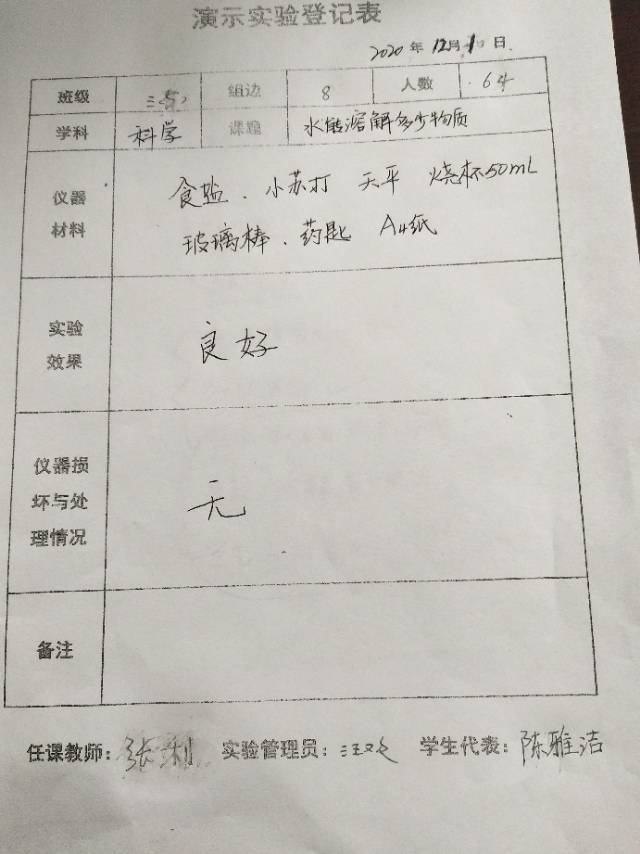 演示实验登记表
2020 年 12月 日
班级 组边 8 人数 64
学科 科学 课题 水能溶解多少物质
仪器材料 食盐、小苏打 天平 烧杯50mL
玻璃棒、药匙 A4纸
实验效果 良好
仪器损坏与处理情况 无
备注
任课教师：张利 实验管理员： 学生代表：陈雅洁